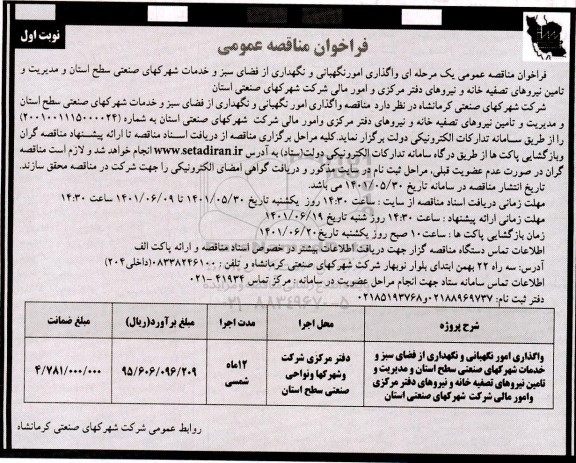 نوبت اول
فراخوان مناقصه عمومی
فراخوان مناقصه عمومی یک مرحله ای واگذاری امورنگهبانی و نگهداری از فضای سبز و خدمات شهرکهای صنعتی سطح استان و مدیریت و
تامین نیروهای تصفیه خانه و نیروهای دفتر مرکزی و امور مالی شرکت شهرکهای صنعتی استان
شرکت شهرکهای صنعتی کرمانشاه در نظر دارد مناقصه واگذاری امور نگهبانی و نگهداری از فضای سبز و خدمات شهرکهای صنعتی سطح استان
و مدیریت و تامین نیروهای تصفیه خانه و نیروهای دفتر مرکزی وامور مالی شرکت شهرکهای صنعتی استان به شماره (۲۰۰۱۰۰۱۱۱۵۰۰۰۰۲۴)
را از طریق سامانه تدارکات الکترونیکی دولت برگزار نماید.کلیه مراحل برگزاری مناقصه از دریافت اسناد مناقصه تا ارائه پیشنهاد مناقصه گران
وبازگشایی پاکت ها از طریق درگاه سامانه تدارکات الکترونیکی دولت(ستاد) به آدرس www.setadiran.ir انجام خواهد شد و لازم است مناقصه
گران در صورت عدم عضویت قبلی، مراحل ثبت نام در سایت مذکور و دریافت گواهی امضای الکترونیکی را جهت شرکت در مناقصه محقق سازند.
تاریخ انتشار مناقصه در سامانه تاریخ ۱۴۰۱/۰۵/۳۰ می باشد.
مهلت زمانی دریافت اسناد مناقصه از سایت : ساعت ۱۴:۳۰ روز یکشنبه تاریخ ۱۴۰۱/۰۵/۳۰ تا ۱۴۰۱/۰۶/۰۹ ساعت ۱۴:۳۰
مهلت زمانی ارائه پیشنهاد : ساعت ۱۴:۳۰ روز شنبه تاریخ ۱۴۰۱/۰۶/۱۹
زمان بازگشایی پاکت ها : ساعت۱۰ صبح روز یکشنبه تاریخ۱۴۰۱/۰۶/۲۰
اطلاعات تماس دستگاه مناقصه گزار جهت دریافت اطلاعات بیشتر در خصوص اسناد مناقصه و ارائه پاکت الف
آدرس: سه راه ۲۲ بهمن ابتدای بلوار نوبهار شرکت شهرکهای صنعتی کرمانشاه و تلفن: ۰۸۳۳۸۲۴۶۱۰۰(داخلی۲۰۴)
اطلاعات تماس سامانه ستاد جهت انجام مراحل عضویت در سامانه : مرکز تماس ۴۱۹۳۴ -۰۲۱
دفتر ثبت نام: ۰۲۱۸۸۹۶۹۷۳۷و۰۲۱۸۵۱۹۳۷۶۸
۰۲۱-۸۸۳۴۹۶۷۰-۵
شرح پروژه محل اجرا مدت اجرا مبلغ برآورد(ریال) مبلغ ضمانت
واگذاری امور نگهبانی و نگهداری از فضای سبز و
خدمات شهرکهای صنعتی سطح استان و مدیریت و
تامین نیروهای تصفیه خانه و نیروهای دفتر مرکزی
وامور مالی شرکت شهرکهای صنعتی استان
دفتر مرکزی شرکت
وشهرکها ونواحی
صنعتی سطح استان
۱۲ماه
شمسی
۹۵/۶۰۶/۰۹۶/۲۰۹
۴/۷۸۱/۰۰۰/۰۰۰
روابط عمومی شرکت شهرکهای صنعتی کرمانشاه